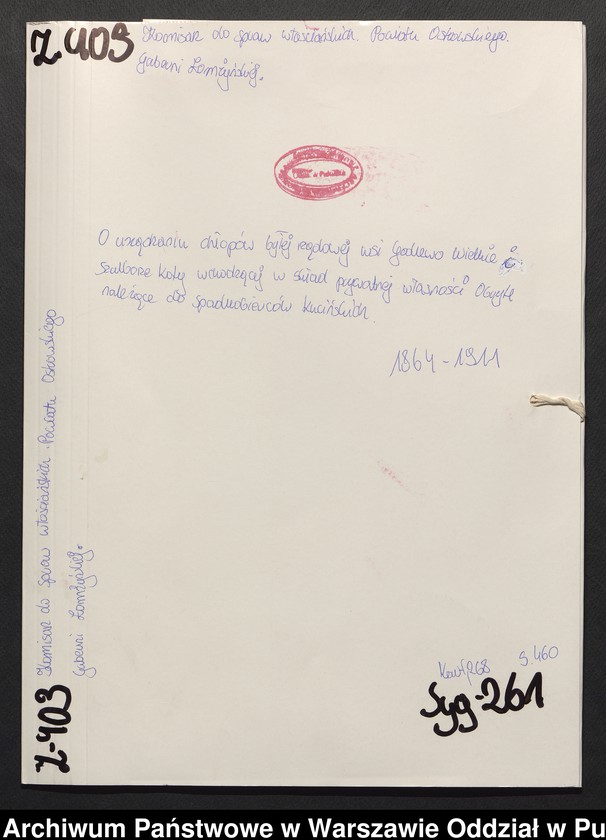 Z-403 Komisarz do spraw włościańskich. Powiatu Ostrowskiego.
Guberni Łomżyńskiej.
O urządzeniu chłopów byłej rządowej wsi Godlewo Wielkie i
Szulborze Koty wchodzącej w skład prywatnej własności Obryte
należące do spadkobierców Kucińskich.
1864-1911
Kart 268 S. 460
Syg-261
Z-403 Komisarz do spraw włościańskich. Powiatu Ostrowskiego
Guberni Łomżyńskiej.
Archiwum Państwowe w Warszawie Oddział w Pu